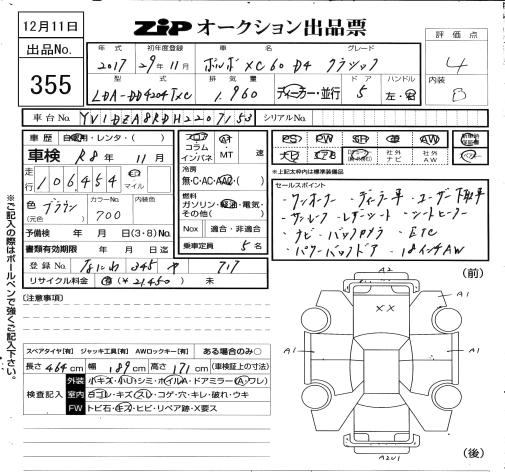 12月11日
ZIP オークション出品票
出品No.
355
評価点
4
内装
B
年式 初年度登録 車名 グレード
2017 29年11月 ボルボ XC60 D4 クラシック
型式 排気量 ドア ハンドル
LDA-DD4204TXC 1,960 ディーラー・並行 5 左・右
車台No. YV1DZA8RDH2207153 シリアルNo.
車歴 自家用・レンタ・( )
車検 R8年 11月
走行 106,454 km マイル
色 (元色) ブラウン カラーNo. 700 内装色
予備検 年 月 日(3・8)No.
書類有効期限 年 月 日迄
登録No. 345 717
リサイクル料金 有(¥21,450) 未
フロア コラム インパネ AT MT 速
冷房 無・C・AC・AAC・( )
燃料 ガソリン・軽油・電気・その他( )
Nox 適合・非適合
乗車定員 5名
PS PW SR 革 AW
ナビ エアB 社外ナビ 社外AW
★上記太枠は標準装備品
セールスポイント
・ワンオーナー ・ディーラー車 ・ユーザー下取車
・サンルーフ ・レザーシート ・シートヒーター
・ナビ ・バックカメラ ・ETC
・パワーバックドア ・18インチAW
※ご記入の際はボールペンで強くご記入下さい。
(注意事項)
スペアタイヤ【有】 ジャッキ工具【有】 AWロックキー【有】 ある場合のみ〇
長さ 464cm 幅 189cm 高さ 171cm (車検証上の寸法)
検査記入
外装 小キズ・小U・シミ・ホイルA・ドアミラー(A・ワレ)
室内 ヨゴレ・キズ・スレ・コゲ・穴・キレ・破れ・ウキ
FW トビ石・キズ・ヒビ・リペア跡・X要ス
(前)
A2
XX
A1
A1
A1
A2U1
(後)